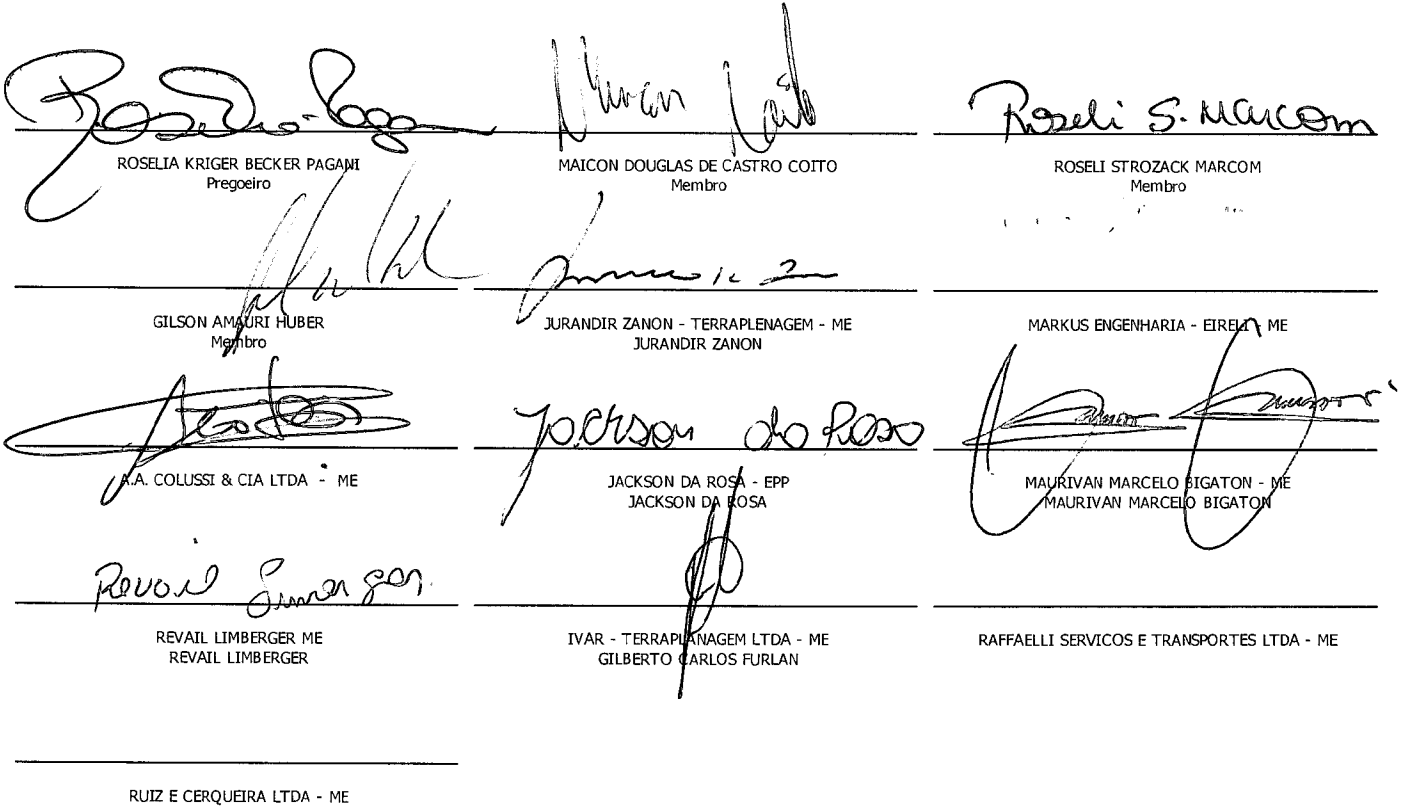 Roseli S. Marcom
ROSELIA KRIGER BECKER PAGANI
Pregoeiro
MAICON DOUGLAS DE CASTRO COITO
Membro
ROSELI STROZACK MARCOM
Membro
GILSON AMAURI HUBER
Membro
JURANDIR ZANON - TERRAPLENAGEM - ME
JURANDIR ZANON
MARKUS ENGENHARIA - EIRELI - ME
Jackson da Rosa
A.A. COLUSSI & CIA LTDA - ME
JACKSON DA ROSA - EPP
JACKSON DA ROSA
MAURIVAN MARCELO BIGATON - ME
MAURIVAN MARCELO BIGATON
Revail
REVAIL LIMBERGER ME
REVAIL LIMBERGER
IVAR - TERRAPLANAGEM LTDA - ME
GILBERTO CARLOS FURLAN
RAFFAELLI SERVICOS E TRANSPORTES LTDA - ME
RUIZ E CERQUEIRA LTDA - ME